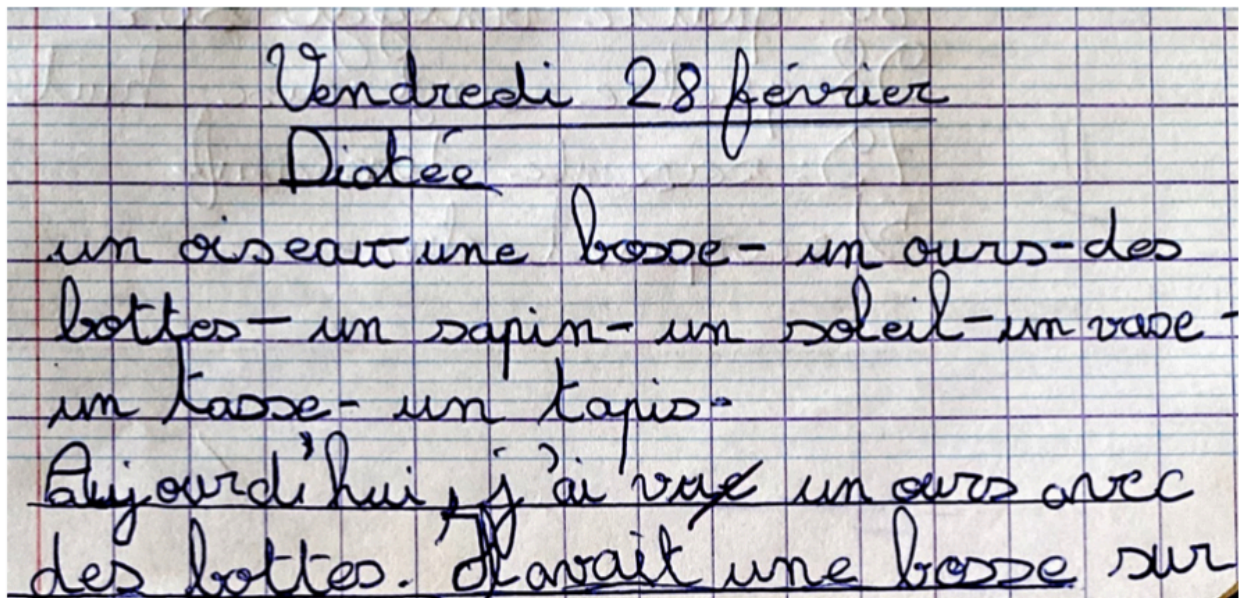 Vendredi 28 février
Dictée
un oiseau-une bosse- un ours-des
bottes- un sapin- un soleil-un vase-
un tasse- un tapis-
Aujourd'hui, j'ai vu un ours avec
des bottes. Il avait une bosse sur